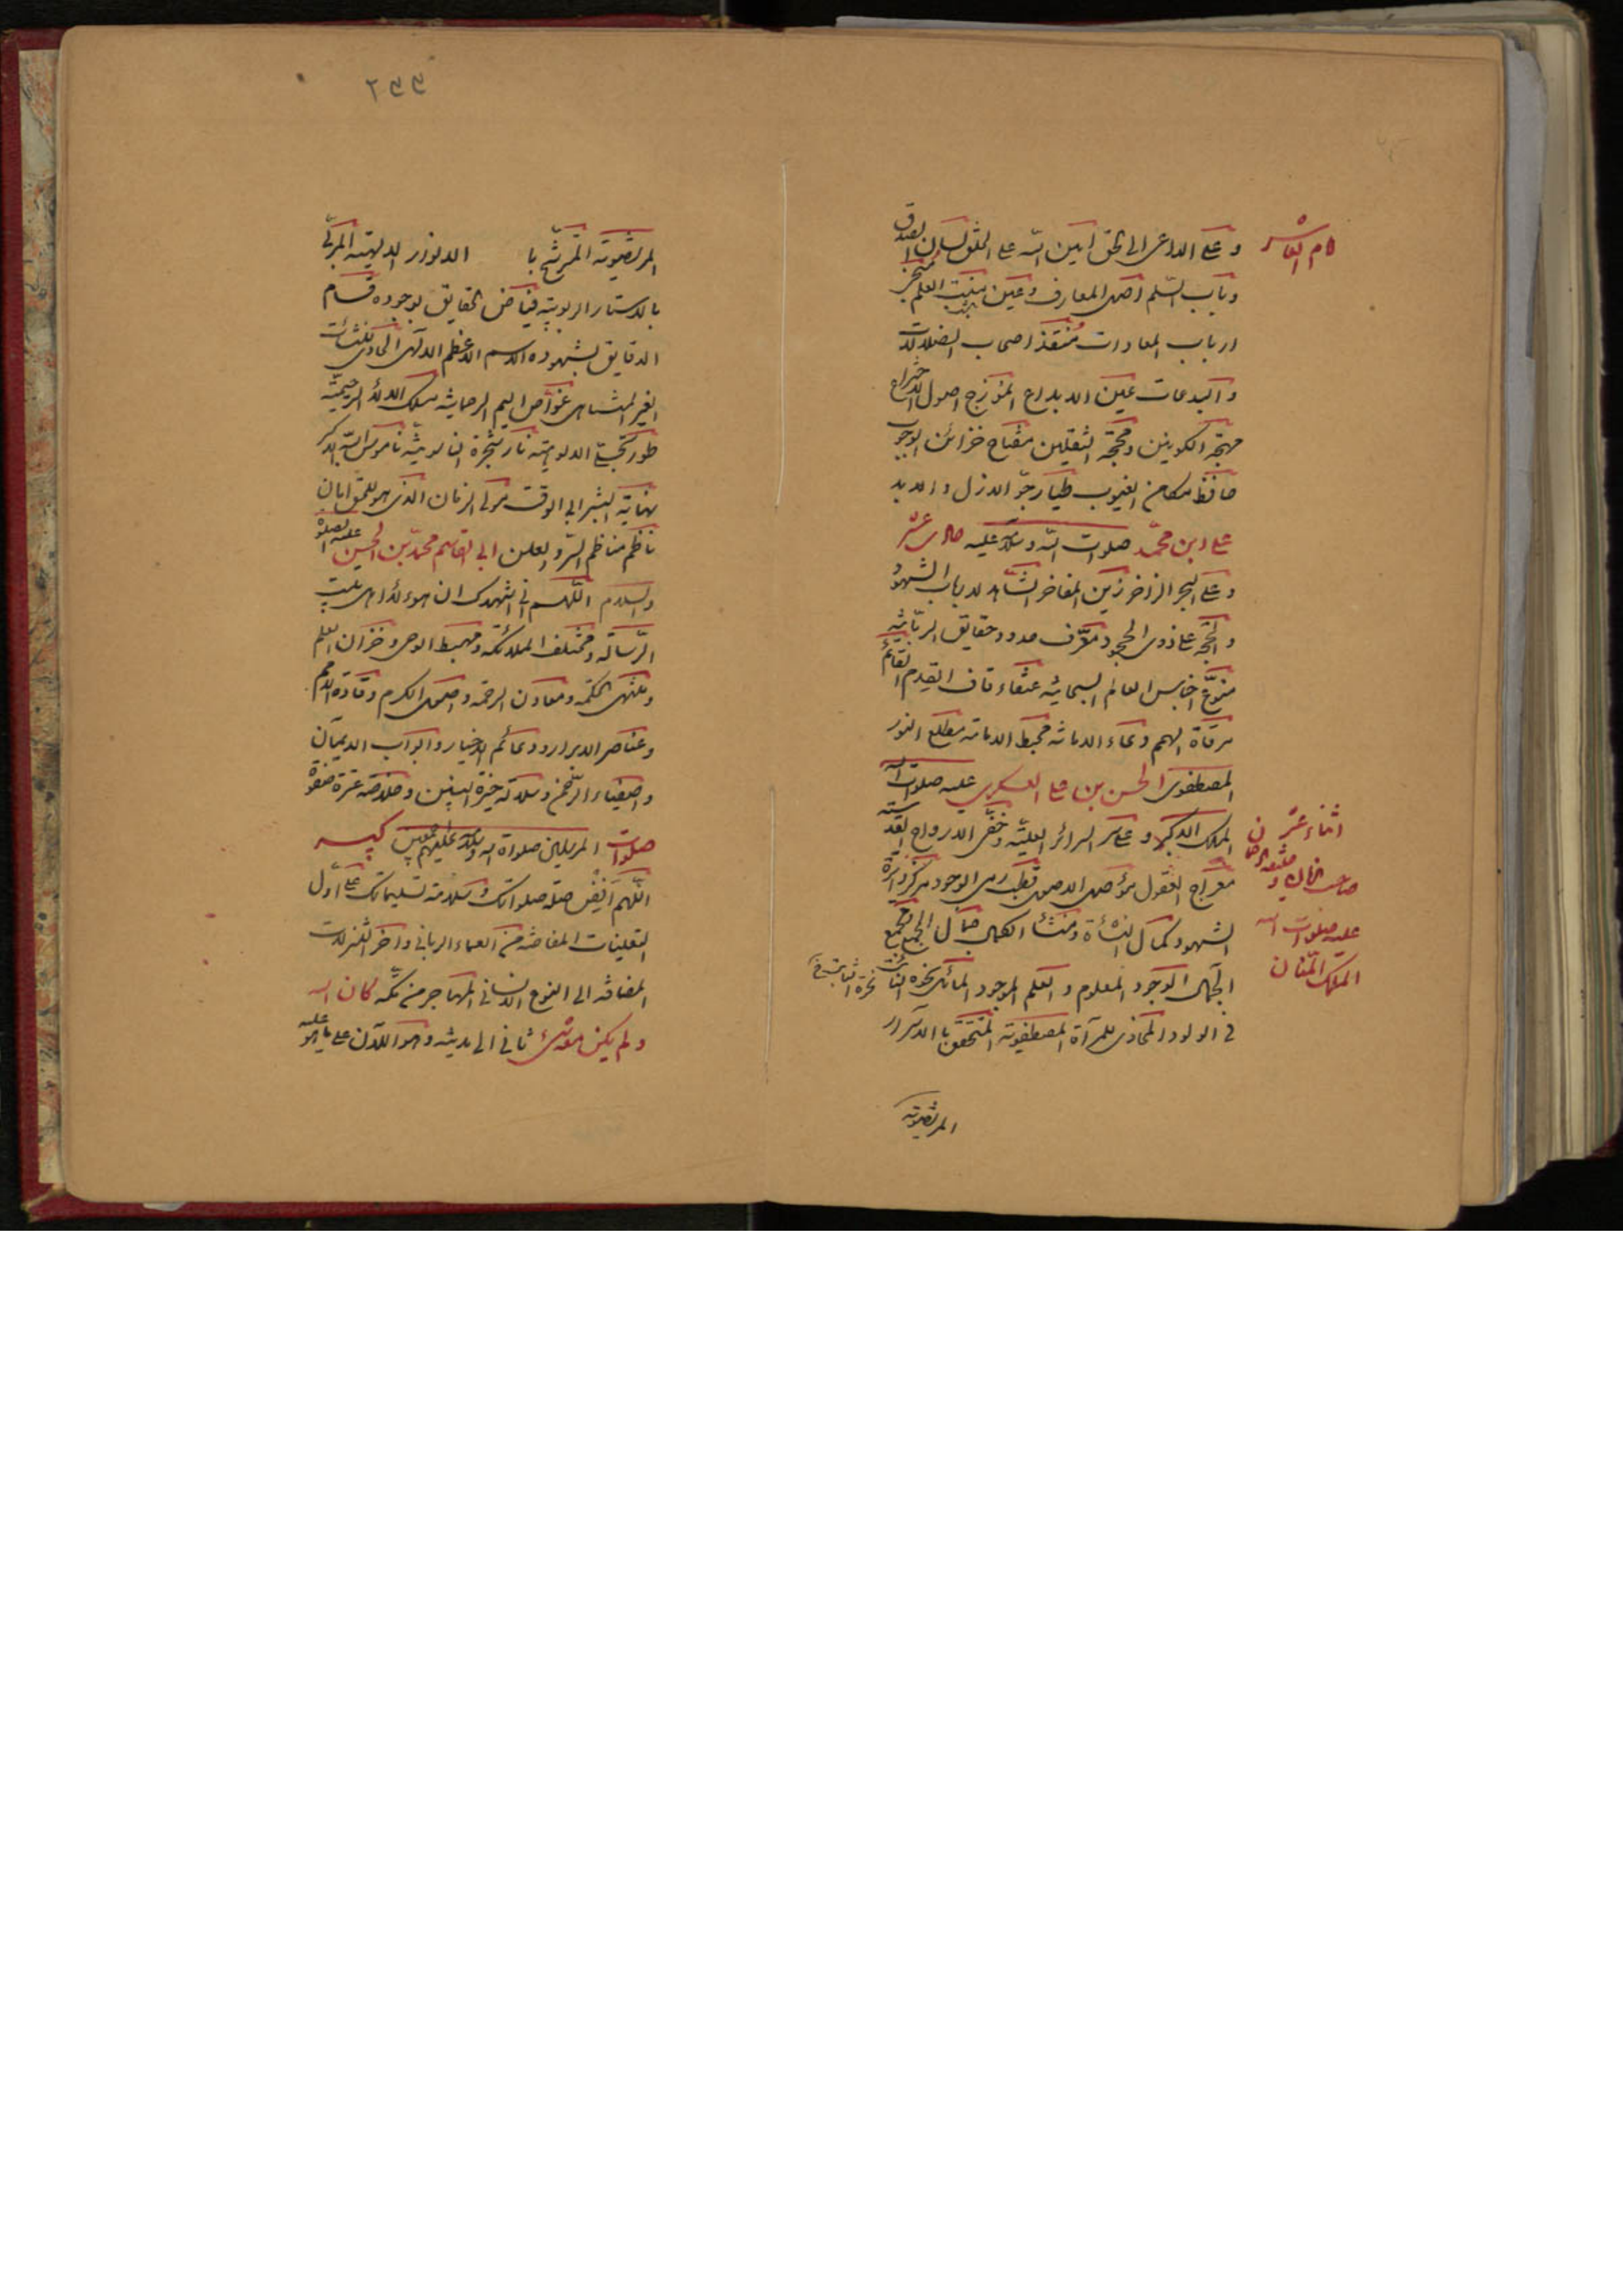 وعلى الداعى الى الحق امين الله على الخلق لسان الصدق
وباب السلم اصل المعارف وعين منبت العلم منجى
ارباب المعادات منقذ اصحاب الضلالات
والبدعات عين الابداع انموزج اصول الاختراع
مهجة الكونين ومحجة الثقلين مفتاح خزائن الوجوب
حافظ مكامن الغيوب طيار جو الازل والابد
على ابن محمد صلوات الله وسلامه عليه
وعلى البحر الزاخر زين المفاخر الشاهد لارباب الشهود
والحجة على ذوى الجحود معرف حدود حقايق الربانية
منوع اجناس العالم السبحانية عنقاء قاف القدم القائم
مرقاة الهمم وعاء الامانة محيط الامامة مطلع النور
المصطفوى الحسن بن على العسكرى عليه صلوات الله
الملك الاكبر وعلى سر السرائر العلية وخفى الارواح القدسية
معراج العقول موصل الاصول قطب رحى الوجود مركز دائرة
الشهود كمال النشأة ومنشأ الكمال جمال الجمع ومجمع
الجمال الوجود المعلوم والعلم الموجود المائل نحوه الثابت
فى الولود المحاذى للمرآة المصطفوية المتحقق بالاسرار
المرتضوية
الملك المنان
عليه صلوات الله
٢٣٣
المرتضوية المترشح با الانوار الالهية المربى
بالاستار الربوبية فياض الحقايق بوجوده قسام
الدقايق بشهوده الاسم الاعظم الالهى الحاوى للنشئات
الغير المتناهى غواص اليم الرحمانية مسلك الالاء الرحيمية
طور تجلى الالوهية نار شجرة الناسوتية ناموس الله الاكبر
نهاية البشر ابى الوقت مولى الزمان الذى هو للحق امان
ناظم مناظم السر والعلن ابى القاسم محمد بن الحسن عليه الصلوة
والسلام اللهم انى اشهدك ان هوءلاء اهل بيت
الرسالة ومختلف الملائكة ومهبط الوحى وخزان العلم
ومنتهى الحكمة ومعادن الرحمة واصول الكرم وقادة الامم
وعناصر الابرار ودعائم الاخيار وابواب الايمان
واصفياء الرحمن وسلالة خيرة النبيين وخلاصة عترة صفوة
المرسلين صلواة الله وسلامه عليهم اجمعين صلوات كبير
اللهم افض صلة صلواتك وسلامة تسليماتك على اول
التعينات المفاضة من العماء الربانى واخر التنزلات
المضافة الى النوع الانسانى المهاجر من مكة كان الله
ولم يكن معه شىء ثانى الى مدينة وهو الآن على ما هو عليه